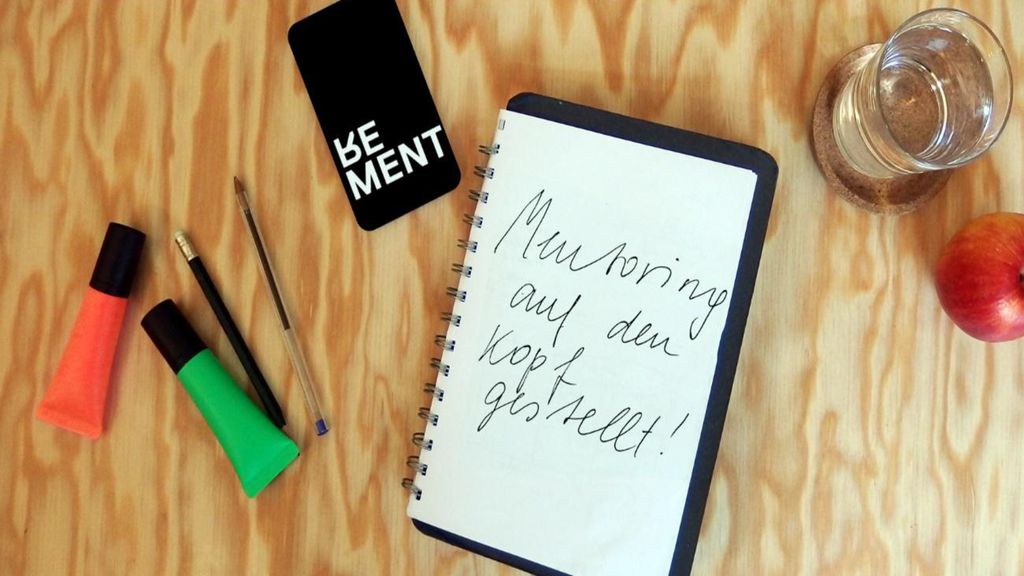 RE
MENT
Mentoring
auf den
Kopf
gestellt!